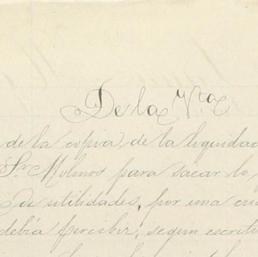 De la V.ta
de la copia de la liquidac
Sr Molinos para sacar lo
de utilidades, por una cu
debía percibir, segun escrit